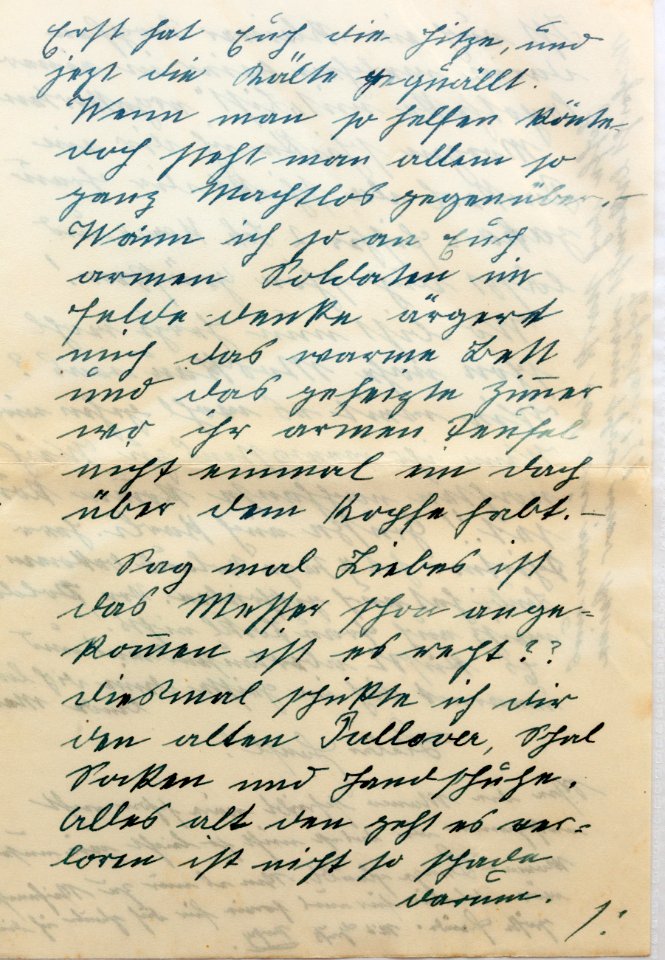 Erst hat Euch die Hitze, und
jezt die Kälte gequällt.
Wenn man so helfen könte
doch steht man allem so
ganz Machtlos gegenüber. –
Wänn ich so an Euch
armen Soldaten im
Felde denke ärgert
mich das warme Bett
und das geheizte Zimmer
wo ihr armen Teufel
nicht einmal ein dach
über dem Kopfe habt. –
Sag mal Liebes ist
das Messer schon ange-
kommen ist es recht??
diesmal schikte ich dir
den alten Pullover, Schal
Socken und Handschuhe.
Alles alt den geht es ver-
loren ist nicht so schade
darum.